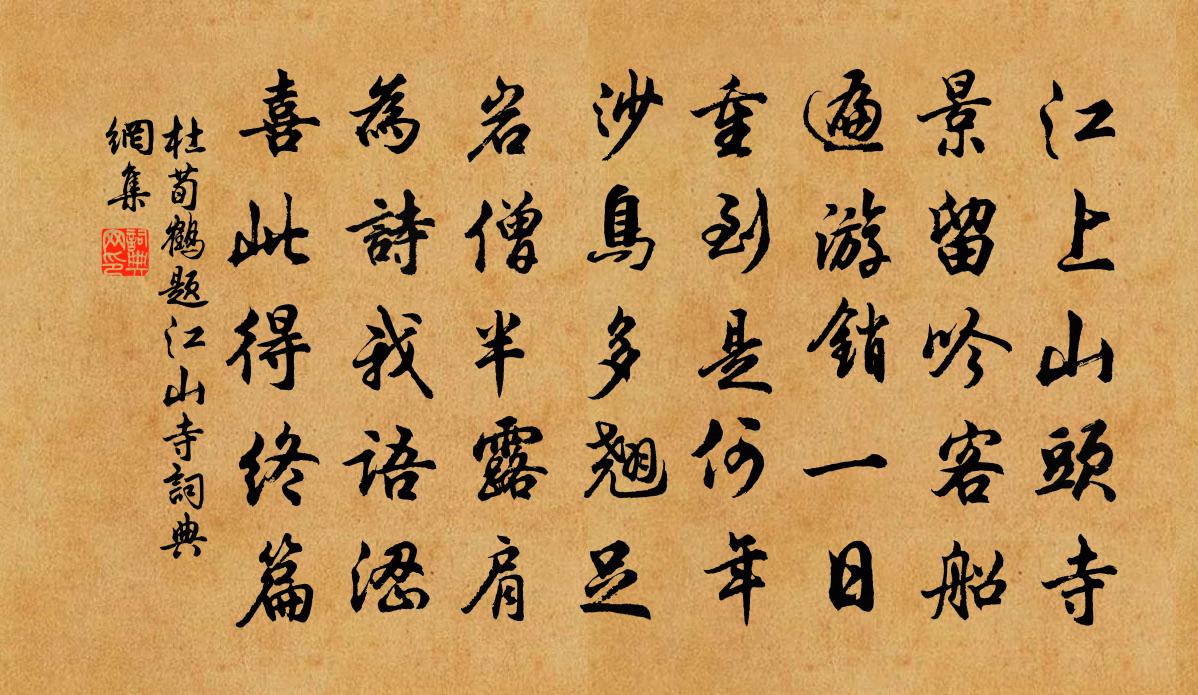 江上山頭寺
景留吟客船
遍游銷一日
重到是何年
沙鳥多翹足
岩僧半露肩
為詩我語澀
喜此得終篇
杜荀鶴題江山寺詞典
網集
詞典
网印